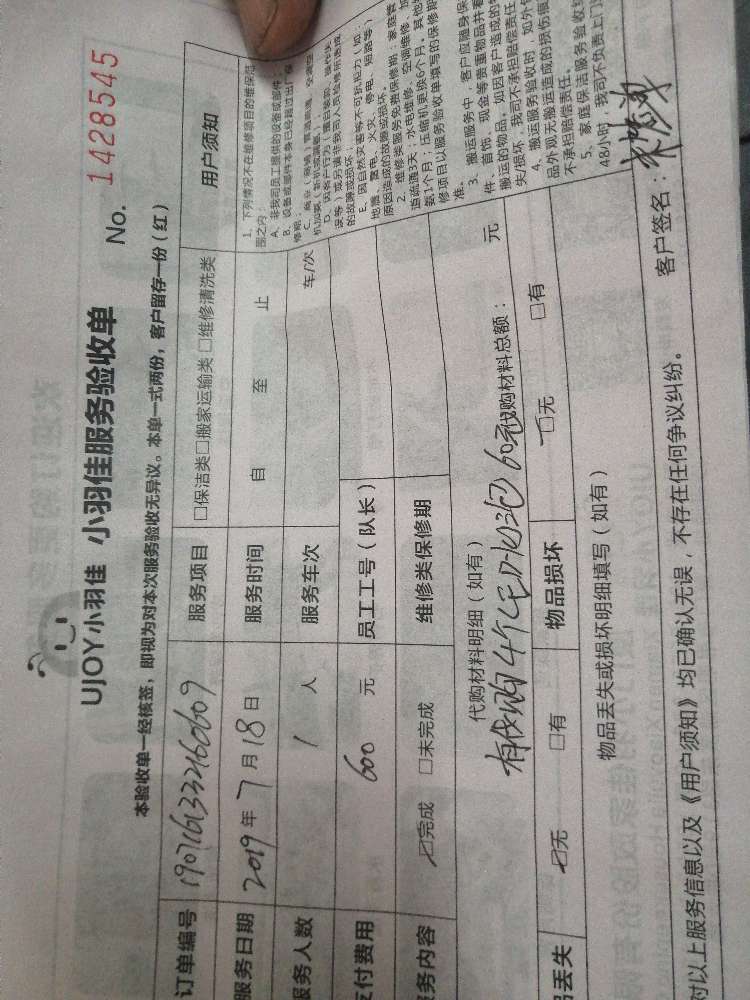 UJOY小羽佳 小羽佳服务验收单
No. 1428545
本验收单一经核签，即视为对本次服务验收无异议。本单一式两份，客户留存一份（红）
订单编号 1907161332160609 服务项目 □保洁类□搬家运输类 □维修清洗类 用户须知
服务日期 2019年7月18日 服务时间 自 至 止
服务人数 1 人 服务车次 车/次
支付费用 600 元 员工工号（队长）
服务内容 ☑完成 □未完成 维修类保修期
代购材料明细（如有）
有代购4个LED灯 60元 代购材料总额： 元
品丢失 ☑无 □有 物品损坏 □无 □有
物品丢失或损坏明细填写（如有）
1、下列情况不在维修项目的维保范
围之内：
A、非我司员工提供的设备或部件
B、设备或部件本身已经超过出厂保
修期；
E、因自然灾害等不可抗拒力（如：
地震、雷电、火灾、停电、短路等）
原因造成的故障或损坏。
2、维修类服务免费保修期：家庭管
道疏通3天；水电维修、空调维修、
数1个月；压缩机更换6个月。其他
修项目以服务验收单填写的保修期
准。
3、搬运服务中，客户应随身保
件、首饰、现金等贵重物品并看
搬运的物品。如因客户造成的
失/损坏，我司不承担赔偿责任
4、搬运服务验收时，如外包
品外观无搬运造成的损伤痕
不承担赔偿责任。
5、家庭保洁服务验收
48小时，我司不负责上门
对以上服务信息以及《用户须知》均已确认无误，不存在任何争议纠纷。 客户签名：